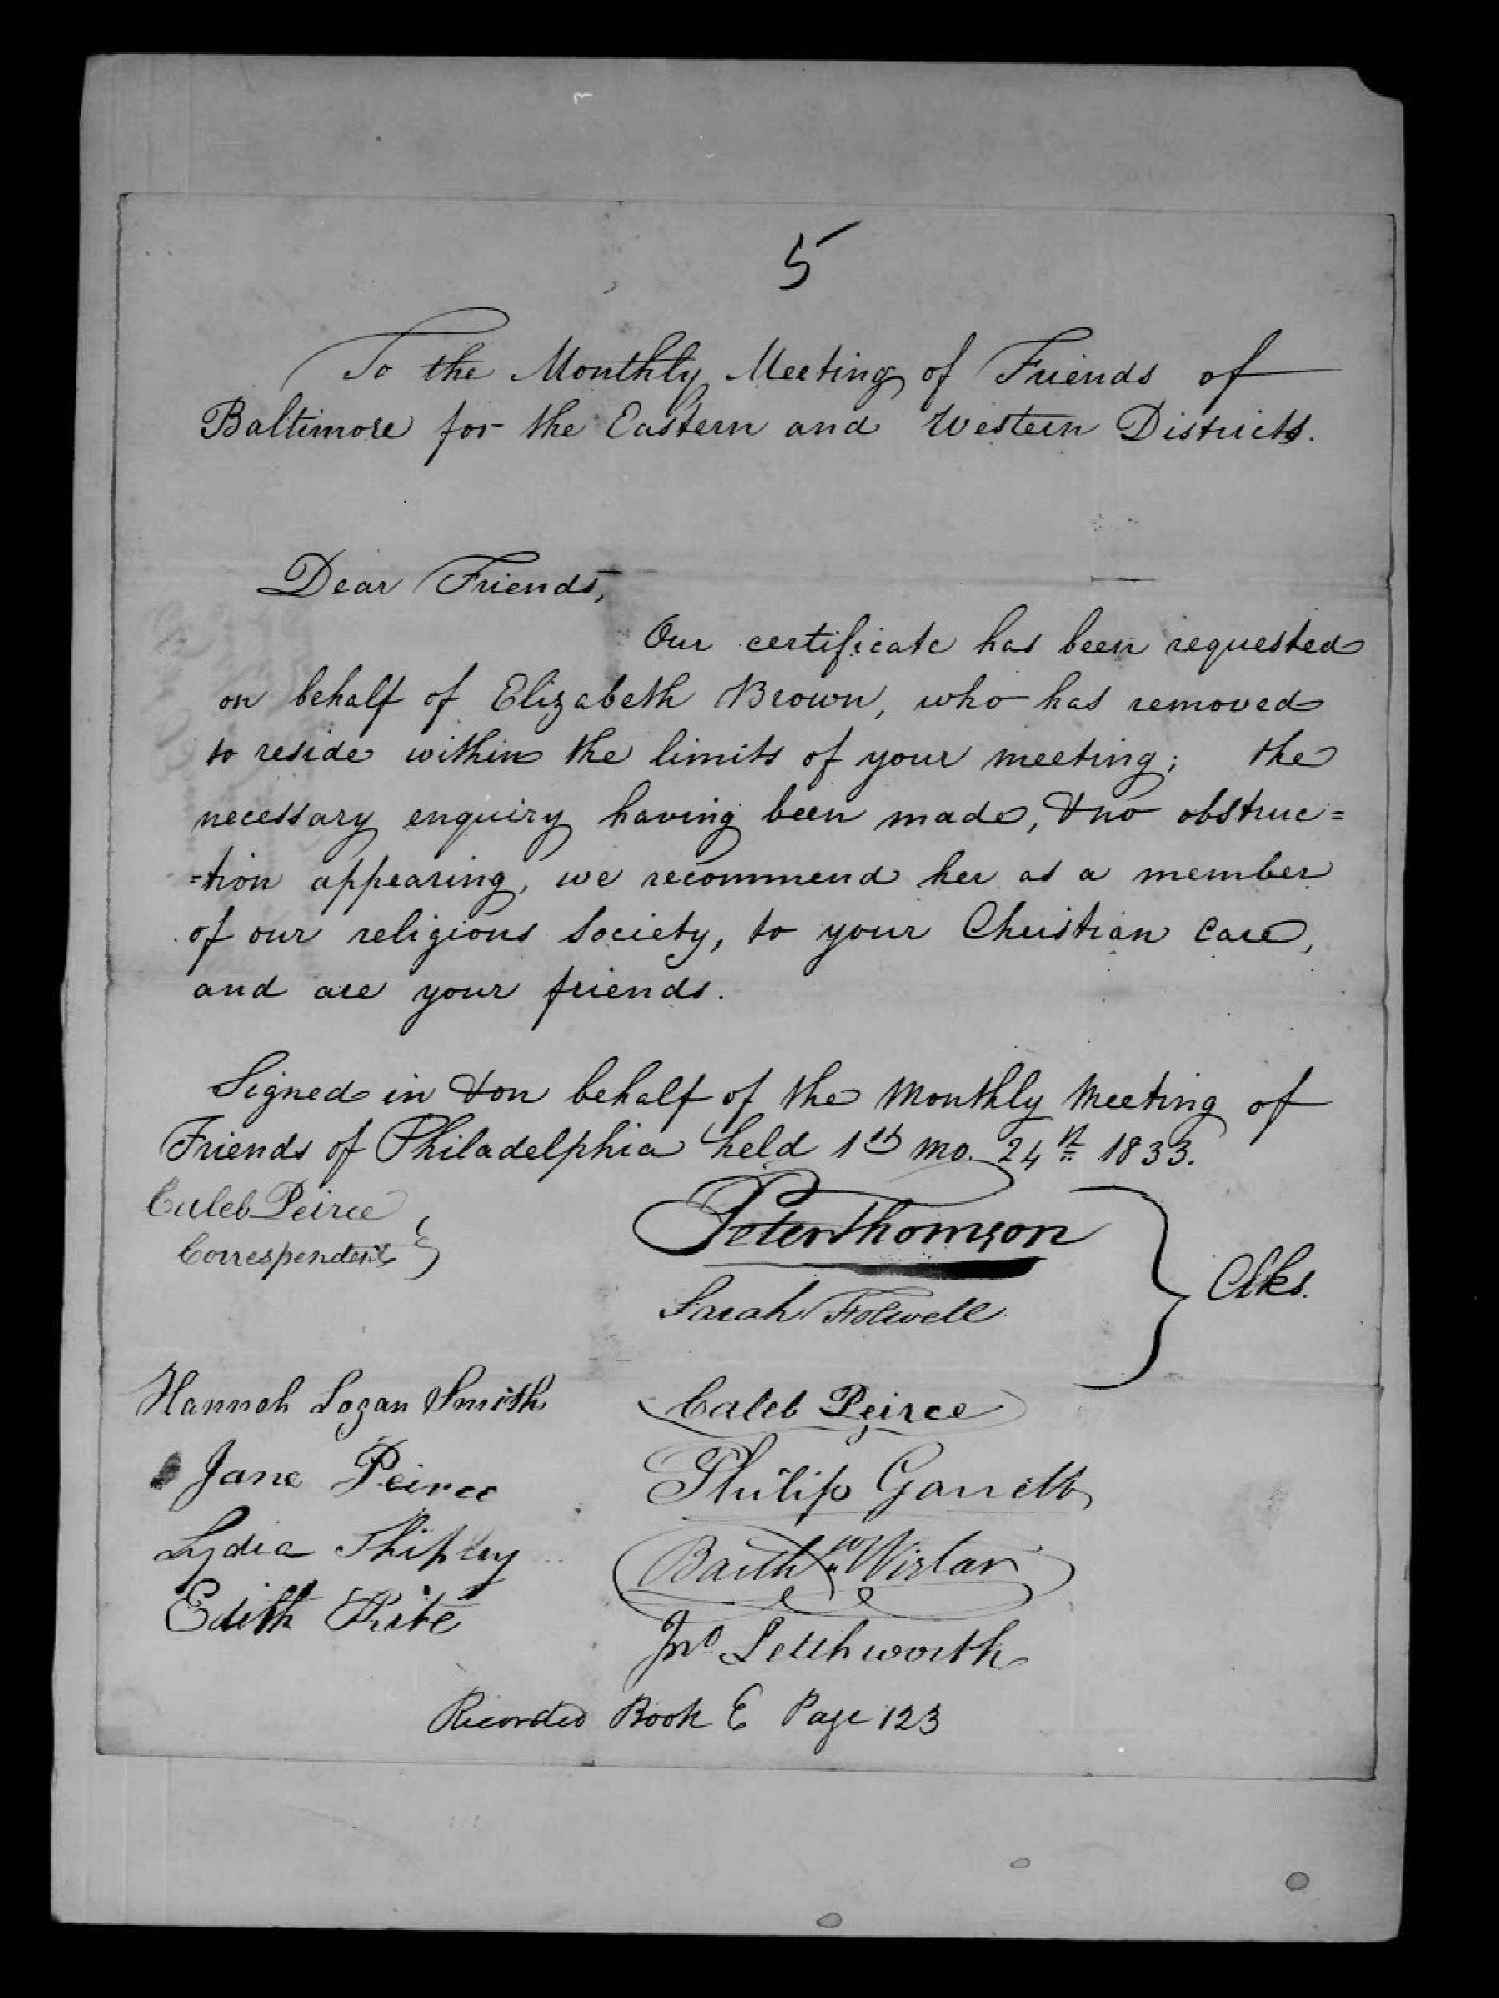 5
To the Monthly Meeting of Friends of
Baltimore for the Eastern and Western Districts.
Dear Friends,
Our certificate has been requested
on behalf of Elizabeth Brown, who has removed
to reside within the limits of your meeting; the
necessary enquiry having been made, & no obstruc=
=tion appearing, we recommend her as a member
of our religious Society, to your Christian care,
and are your friends.
Signed in & on behalf of the Monthly Meeting of
Friends of Philadelphia held 1st mo. 24th 1833.
Caleb Peirce
Correspondent
Peter Thomson
Sarah Folwell
Clks.
Hannah Logan Smith
Jane Peirce
Lydia Shipley
Edith
Caleb Peirce
Philip Garrett
Barthw Wistar
Jno Letchworth
Recorded Book E Page 123